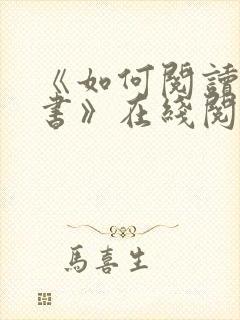 《如何閱讀
書》在綫閱
馬喜生